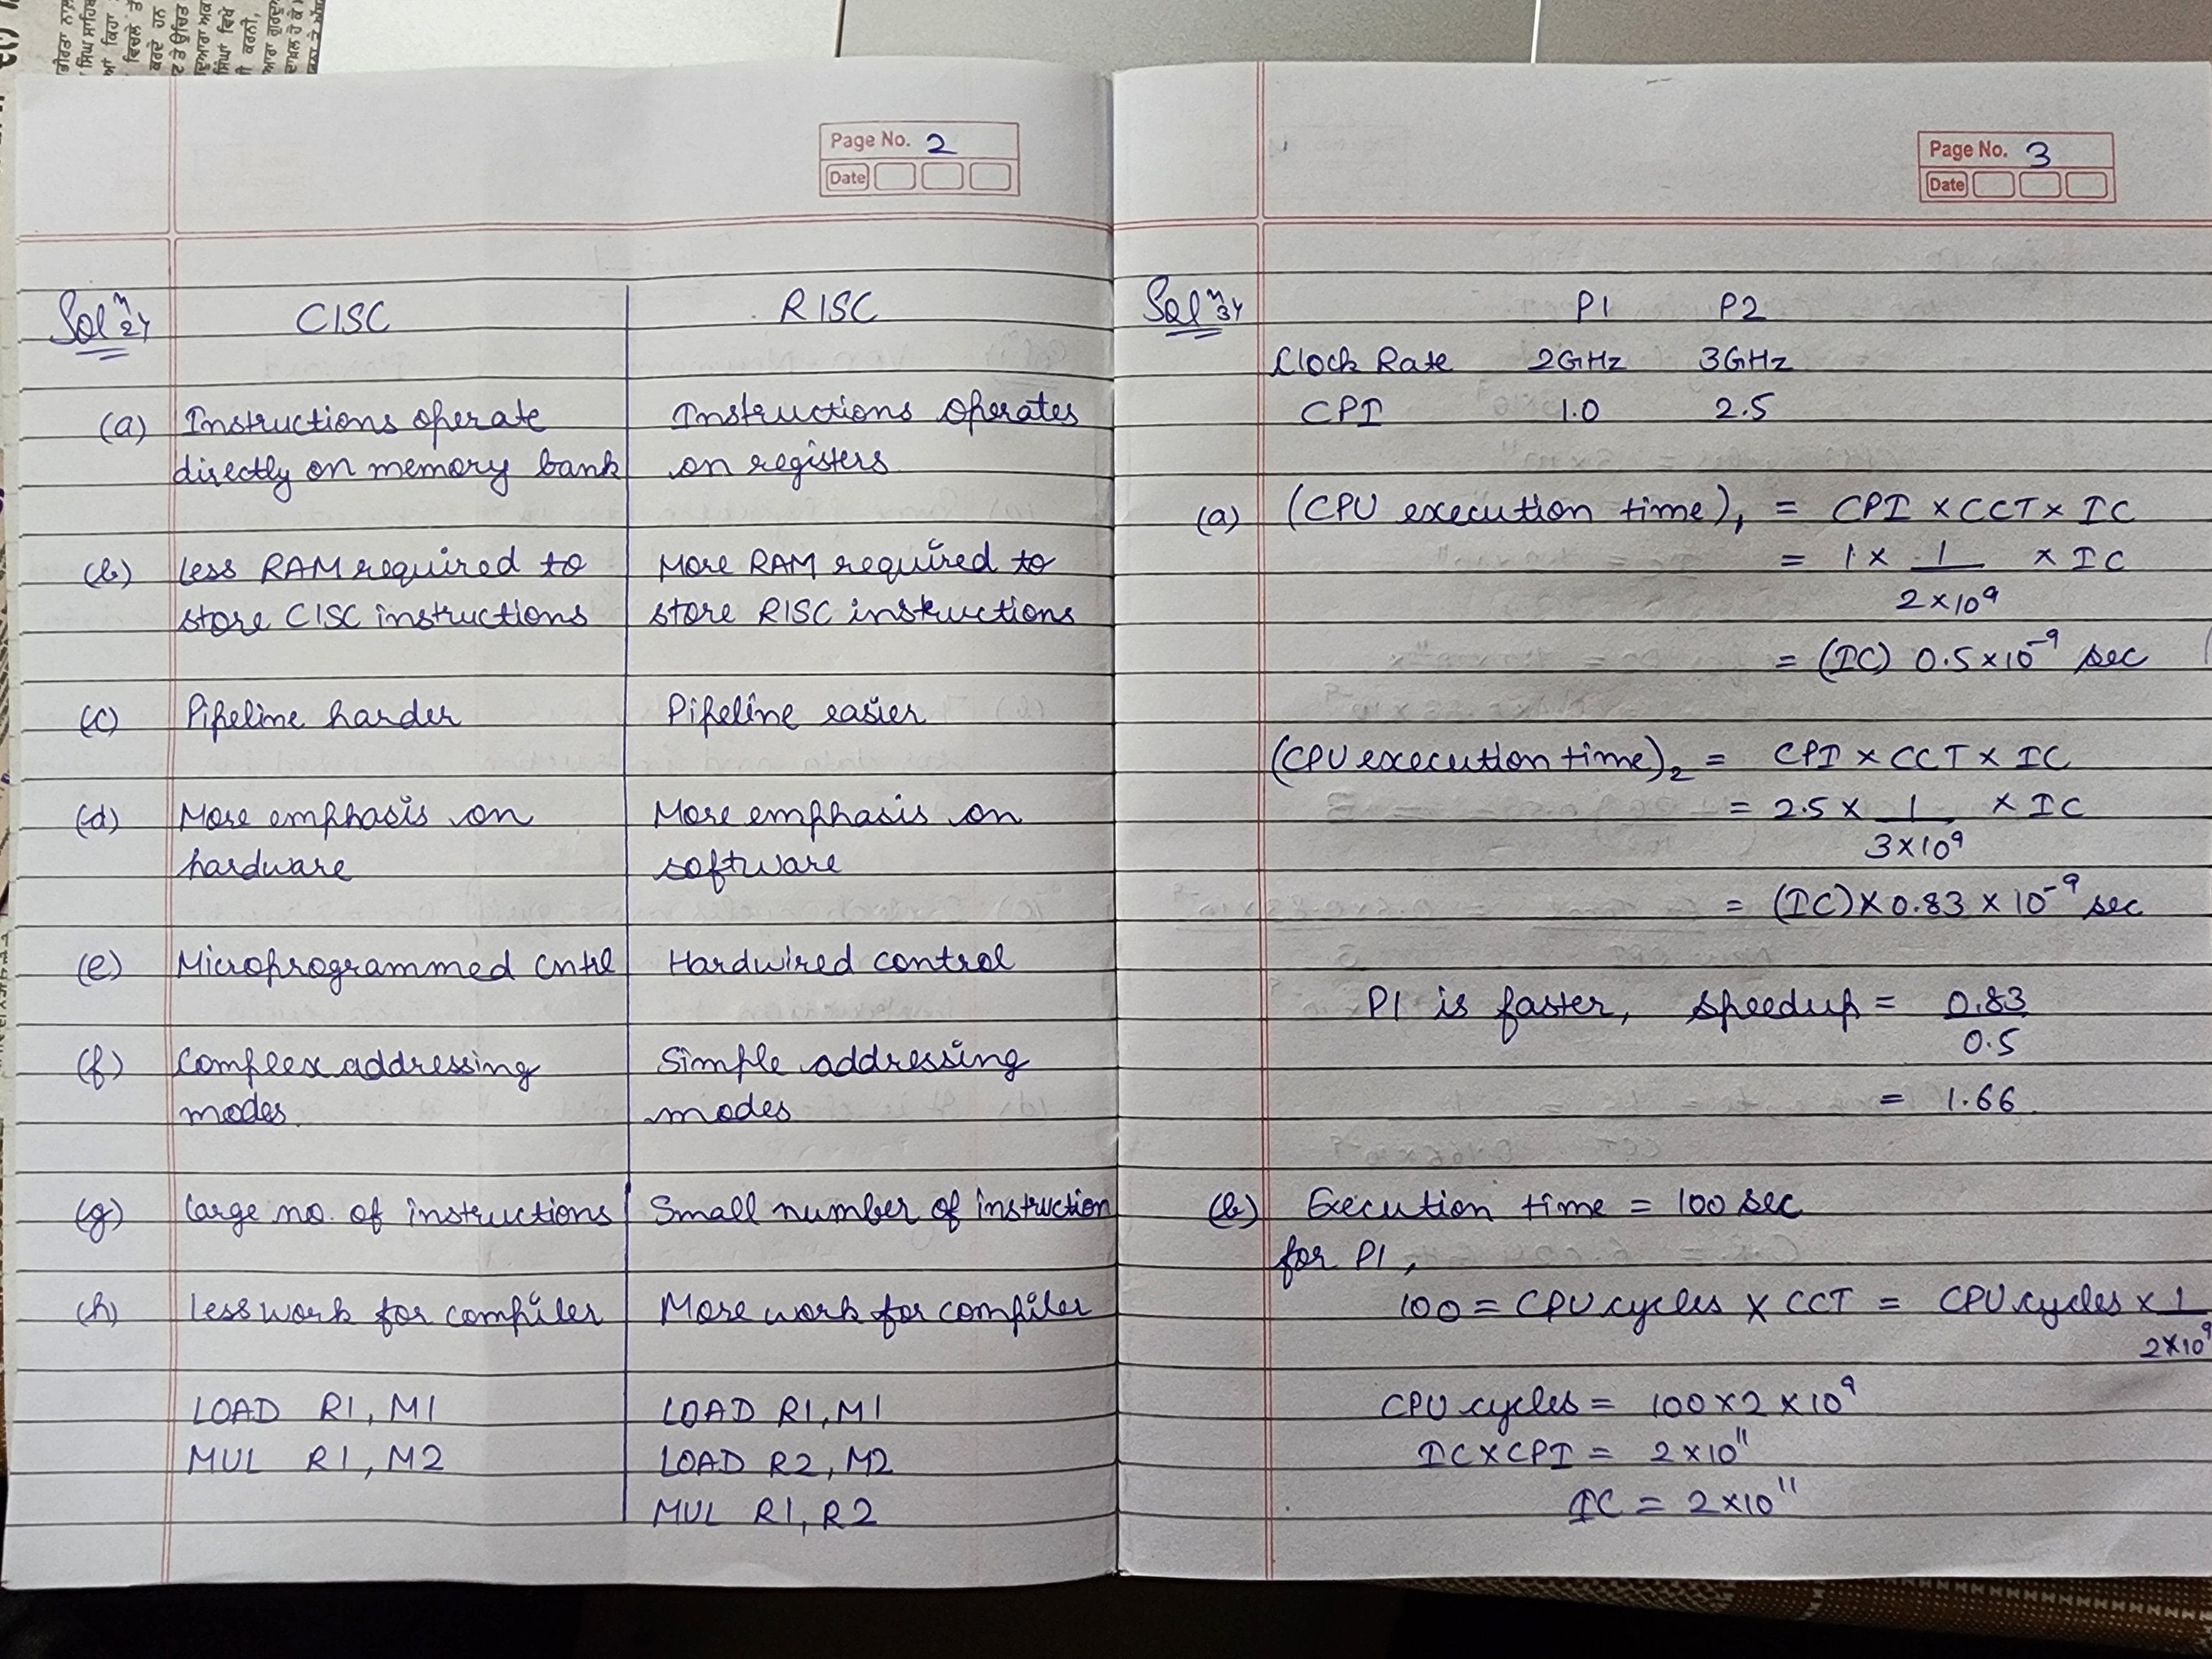 Page No. 2
Date
Solⁿ 2)
CISC RISC
(a) Instructions operate Instructions operates
directly on memory bank on registers
(b) Less RAM required to More RAM required to
store CISC instructions store RISC instructions
(c) Pipeline harder Pipeline easier
(d) More emphasis on More emphasis on
hardware software
(e) Microprogrammed Cntrl Hardwired control
(f) Complex addressing Simple addressing
modes. modes
(g) Large no. of instructions Small number of instruction
(h) Less work for compiler More work for compiler
LOAD R1, M1 LOAD R1, M1
MUL R1, M2 LOAD R2, M2
MUL R1, R2
Page No. 3
Date
Solⁿ 3)
P1 P2
Clock Rate 2GHz 3GHz
CPI 1.0 2.5
(a) (CPU execution time)₁ = CPI × CCT × IC
= 1 × 1 / 2×10⁹ × IC
= (IC) 0.5×10⁻⁹ sec
(CPU execution time)₂ = CPI × CCT × IC
= 2.5 × 1 / 3×10⁹ × IC
= (IC) × 0.83 × 10⁻⁹ sec
P1 is faster, speedup = 0.83 / 0.5
= 1.66
(b) Execution time = 100 sec
for P1,
100 = CPU cycles × CCT = CPU cycles × 1 / 2×10⁹
CPU cycles = 100×2×10⁹
IC×CPI = 2×10¹¹
IC = 2×10¹¹